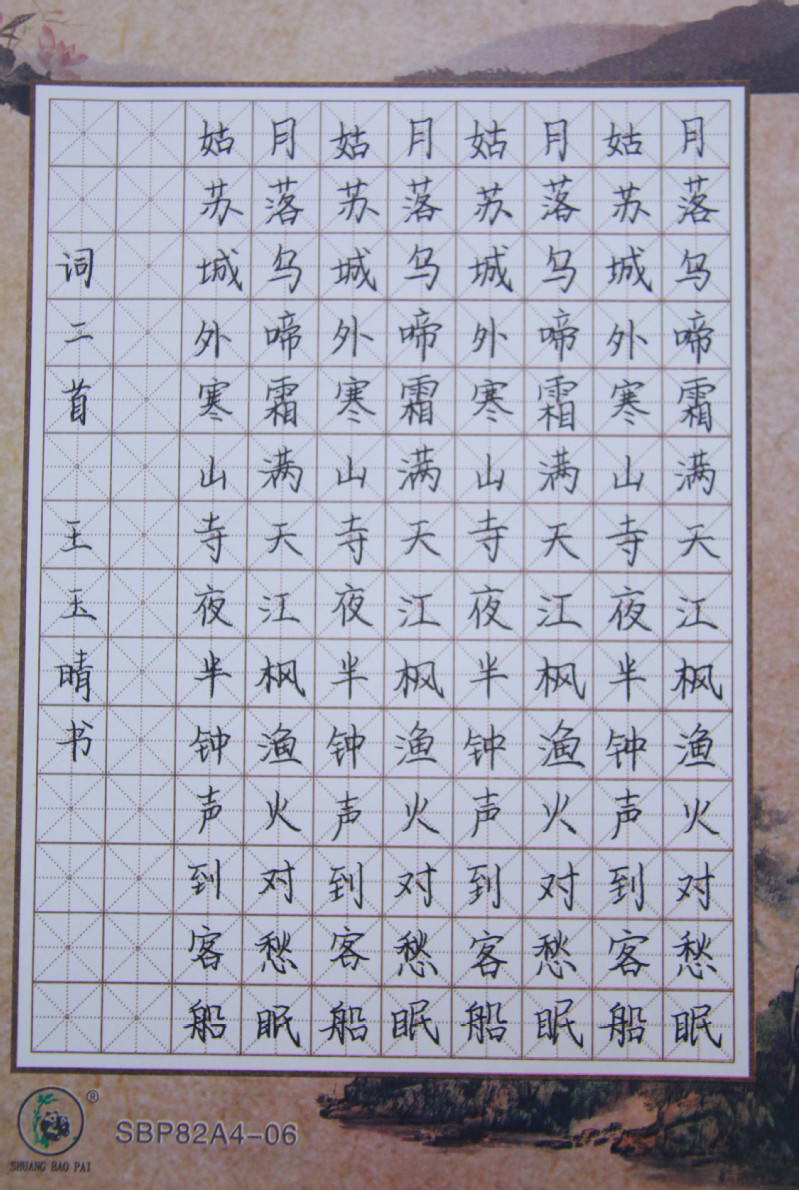 月落乌啼霜满天江枫渔火对愁眠
姑苏城外寒山寺夜半钟声到客船
月落乌啼霜满天江枫渔火对愁眠
姑苏城外寒山寺夜半钟声到客船
月落乌啼霜满天江枫渔火对愁眠
姑苏城外寒山寺夜半钟声到客船
月落乌啼霜满天江枫渔火对愁眠
姑苏城外寒山寺夜半钟声到客船
词二首 王玉晴书
®
SHUANG BAO PAI
SBP82A4-06